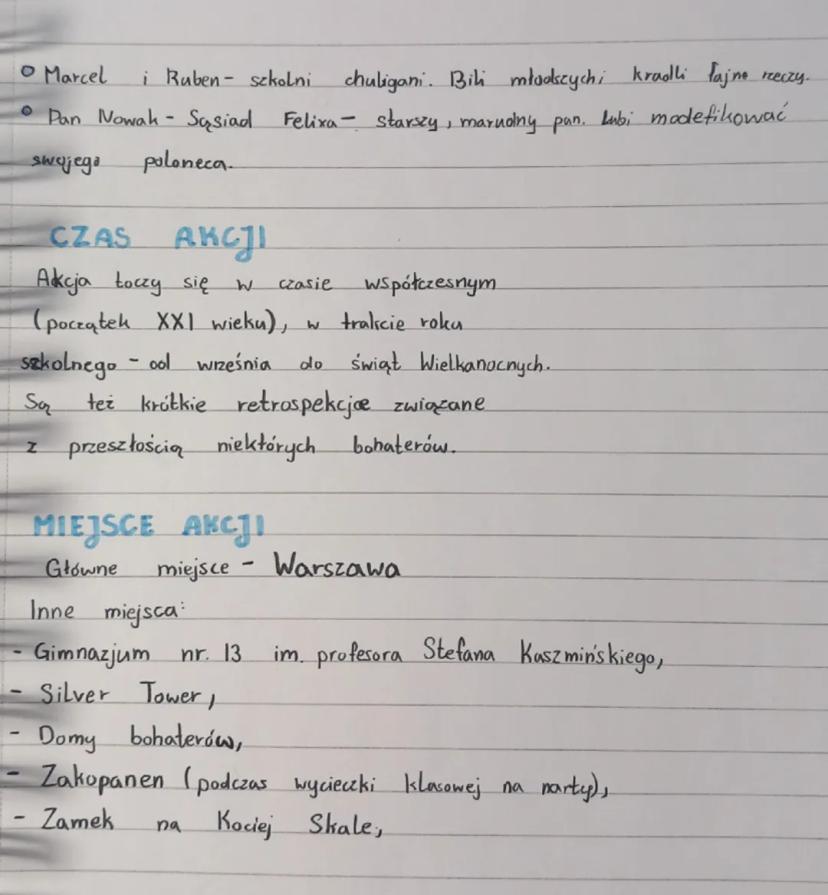 Marcel i Ruben - szkolni chuligani. Bili młodszych i kradli fajne rzeczy.
Pan Nowak - Sąsiad Felixa - starszy, marudny pan. Lubi modefikować
swojego poloneca.
CZAS AKCJI
Akcja toczy się w czasie współczesnym
(początek XXI wieku), w trakcie roku
szkolnego - od września do świąt Wielkanocnych.
Są też krótkie retrospekcje związane
z przeszłością niektórych bohaterów.
MIEJSCE AKCJI
Główne miejsce - Warszawa
Inne miejsca:
- Gimnazjum nr. 13 im. profesora Stefana Kuszmińskiego,
- Silver Tower,
- Domy bohaterów,
- Zakopanen (podczas wycieczki klasowej na narty),
- Zamek na Kociej Skale,